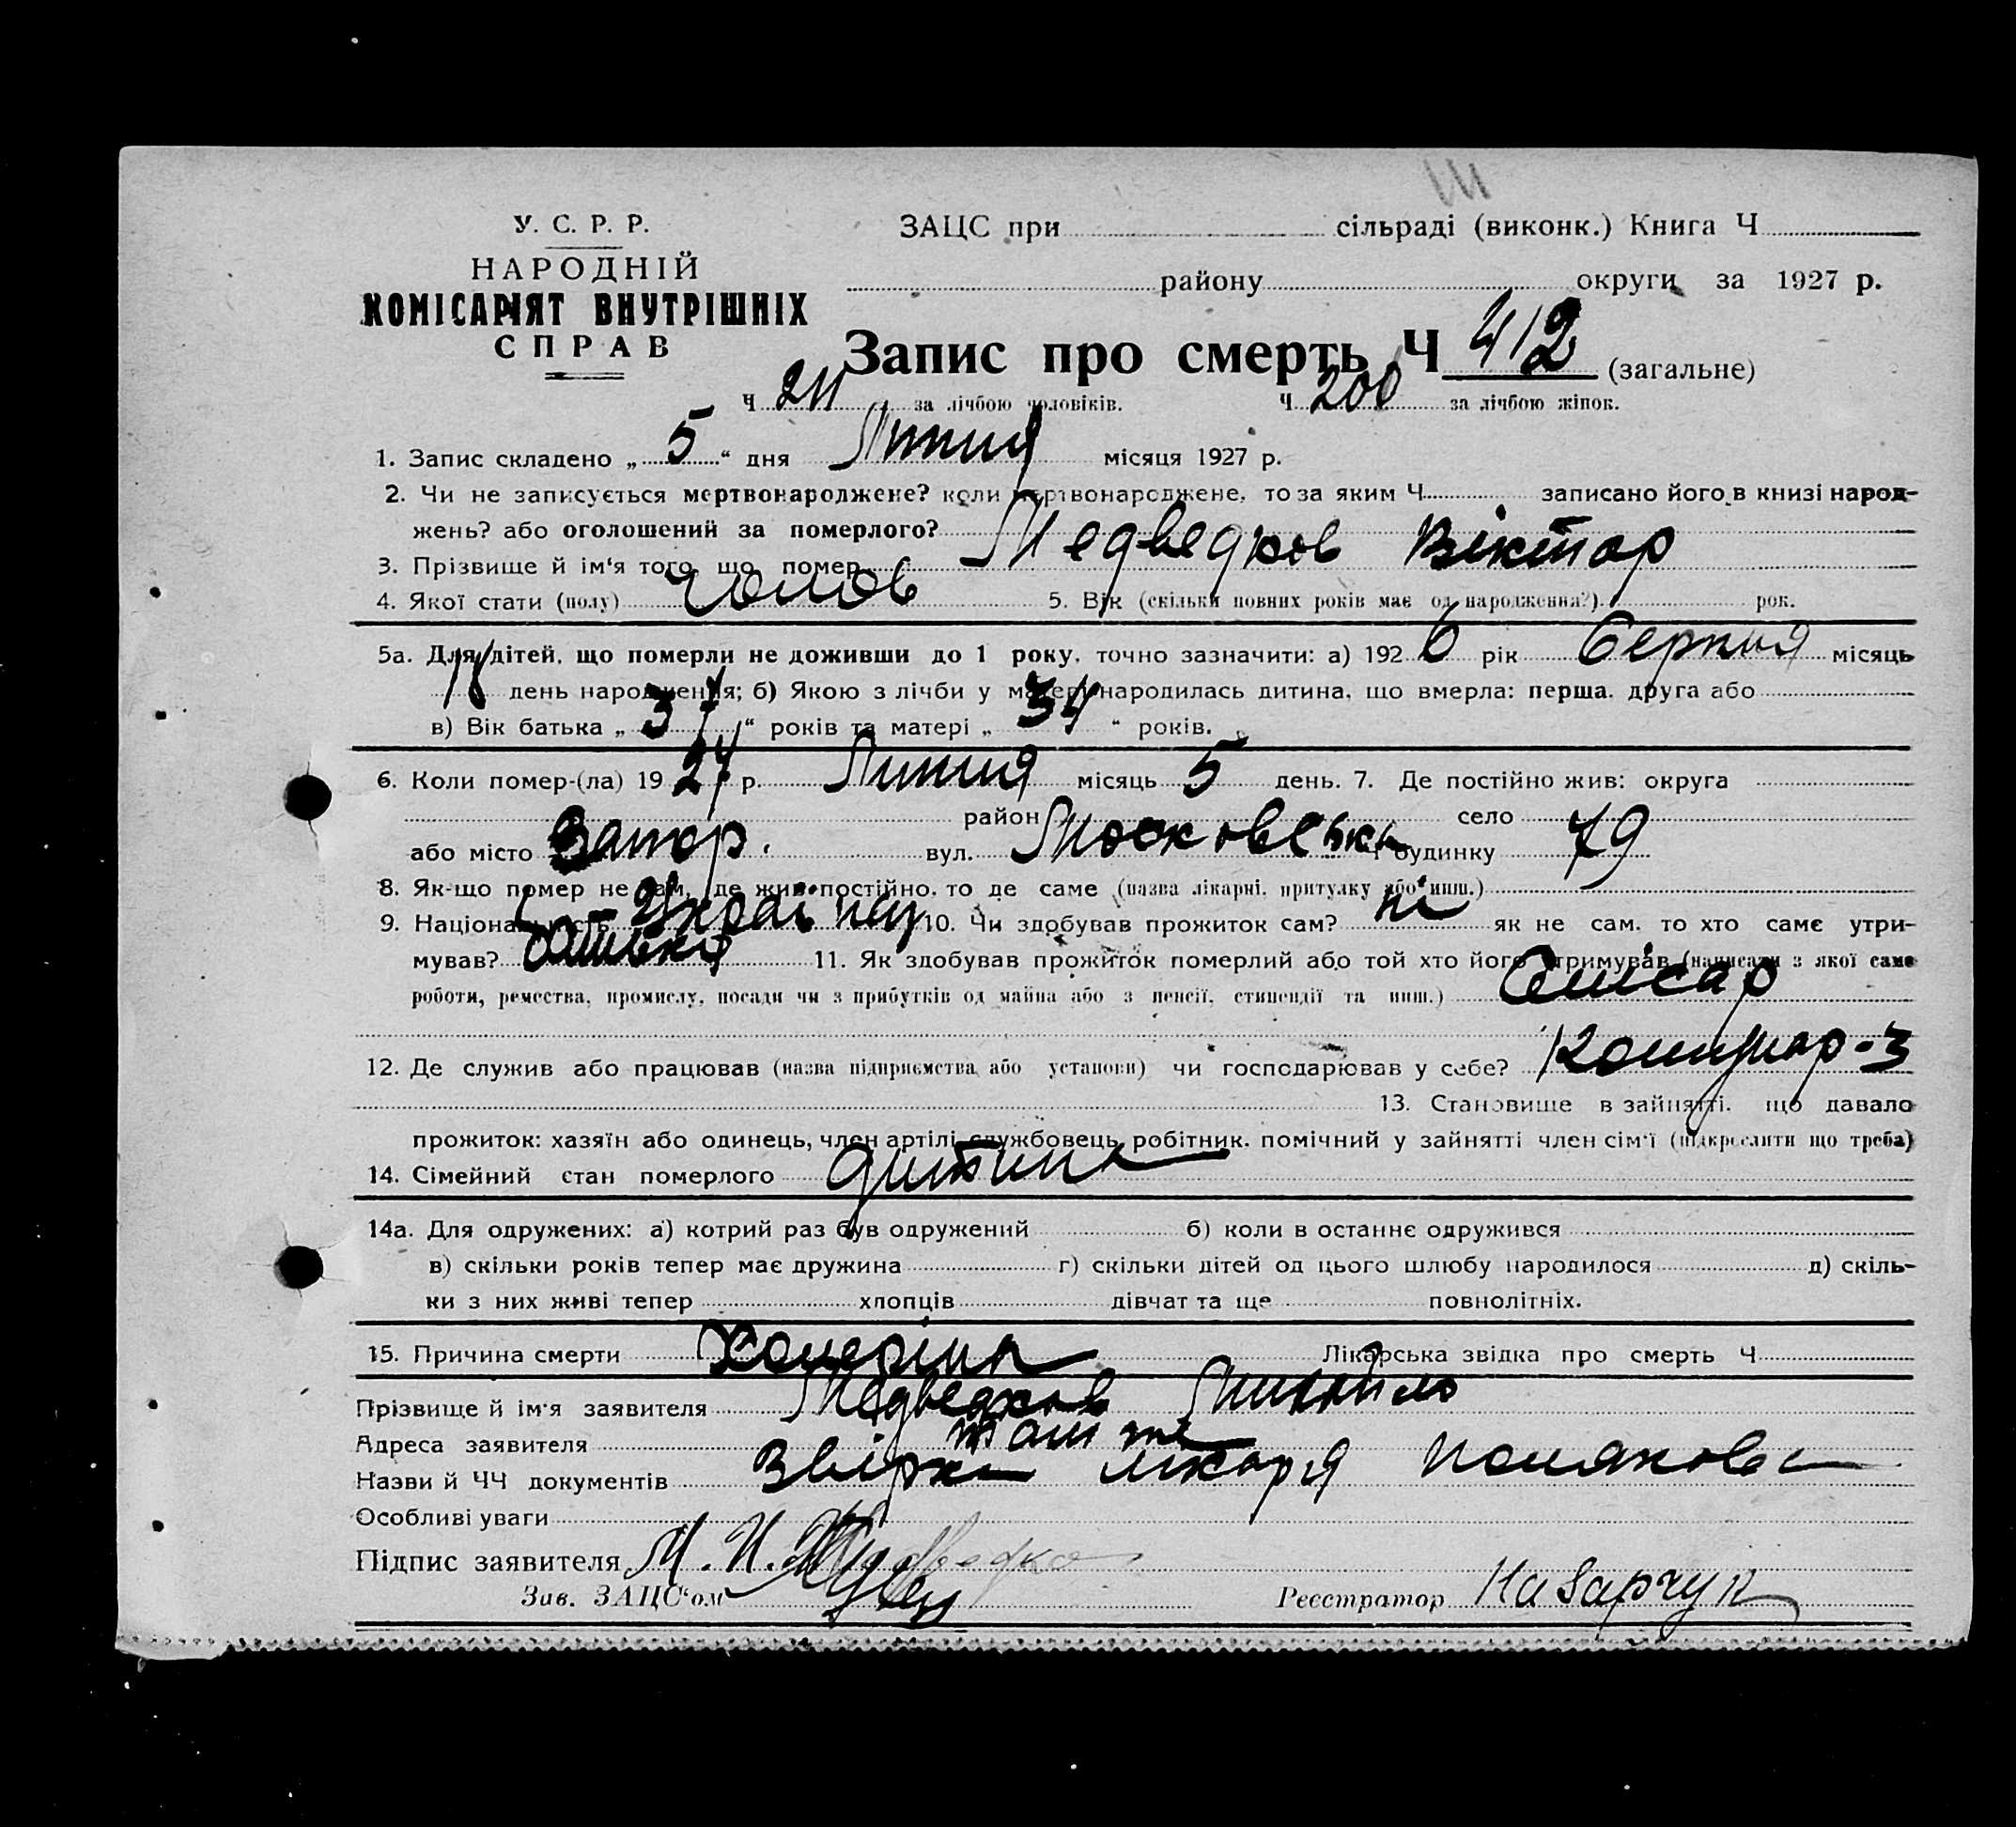 У. С. Р. Р.
НАРОДНІЙ
КОМІСАРІЯТ ВНУТРІШНІХ
СПРАВ
ЗАЦС при сільраді (виконк.) Книга Ч
району округи за 1927 р.
Запис про смерть Ч 412 (загальне)
Ч за лічбою чоловіків. Ч 200 за лічбою жінок.
1. Запис складено „ 5 “ дня Липня місяця 1927 р.
2. Чи не записується мертвонароджене? коли мертвонароджене, то за яким Ч записано його в книзі народ-
жень? або оголошений за померлого?
3. Прізвище й ім‘я того, що помер Медведков Віктор
4. Якої стати (полу) чолов 5. Вік (скільки повних років має од народження?) рок.
5а. Для дітей, що померли не доживши до 1 року, точно зазначити: а) 192 6 рік Серпня місяць
день народження; б) Якою з лічби у матері народилась дитина, що вмерла: перша, друга або
в) Вік батька „ 37 “ років та матері „ 34 “ років.
6. Коли помер-(ла) 19 27 р. Липня місяць 5 день. 7. Де постійно жив: округа
район село
або місто Запор. вул. Московська Ч будинку 79
8. Як-що помер не там, де жив постійно, то де саме (назва лікарні, притулку або инш.)
9. Національність Українец 10. Чи здобував прожиток сам? ні як не сам, то хто саме утри-
мував? батько 11. Як здобував прожиток померлий або той хто його утримував (написати з якої саме
роботи, ремества, промислу, посади чи з прибутків од майна або з пенсії, стипендії та инш.) Слюсар
12. Де служив або працював (назва підприємства або установи) чи господарював у себе? Комунар-з
13. Становище в зайнятті, що давало
прожиток: хазяїн або одинець, член артілі, службовець, робітник, помічний у зайнятті член сім‘ї (підкреслити що треба)
14. Сімейний стан померлого дитина
14а. Для одружених: а) котрий раз був одружений б) коли в останнє одружився
в) скільки років тепер має дружина г) скільки дітей од цього шлюбу народилося д) скіль-
ки з них живі тепер хлопців дівчат та ще повнолітніх.
15. Причина смерти Холеріна Лікарська звідка про смерть Ч
Прізвище й ім‘я заявителя Медведков Михайло
Адреса заявителя там же
Назви й ЧЧ документів Звідка лікаря Полякова
Особливі уваги
Підпис заявителя М. И. Медведко
Зав. ЗАЦС‘ом Реєстратор Назарчук